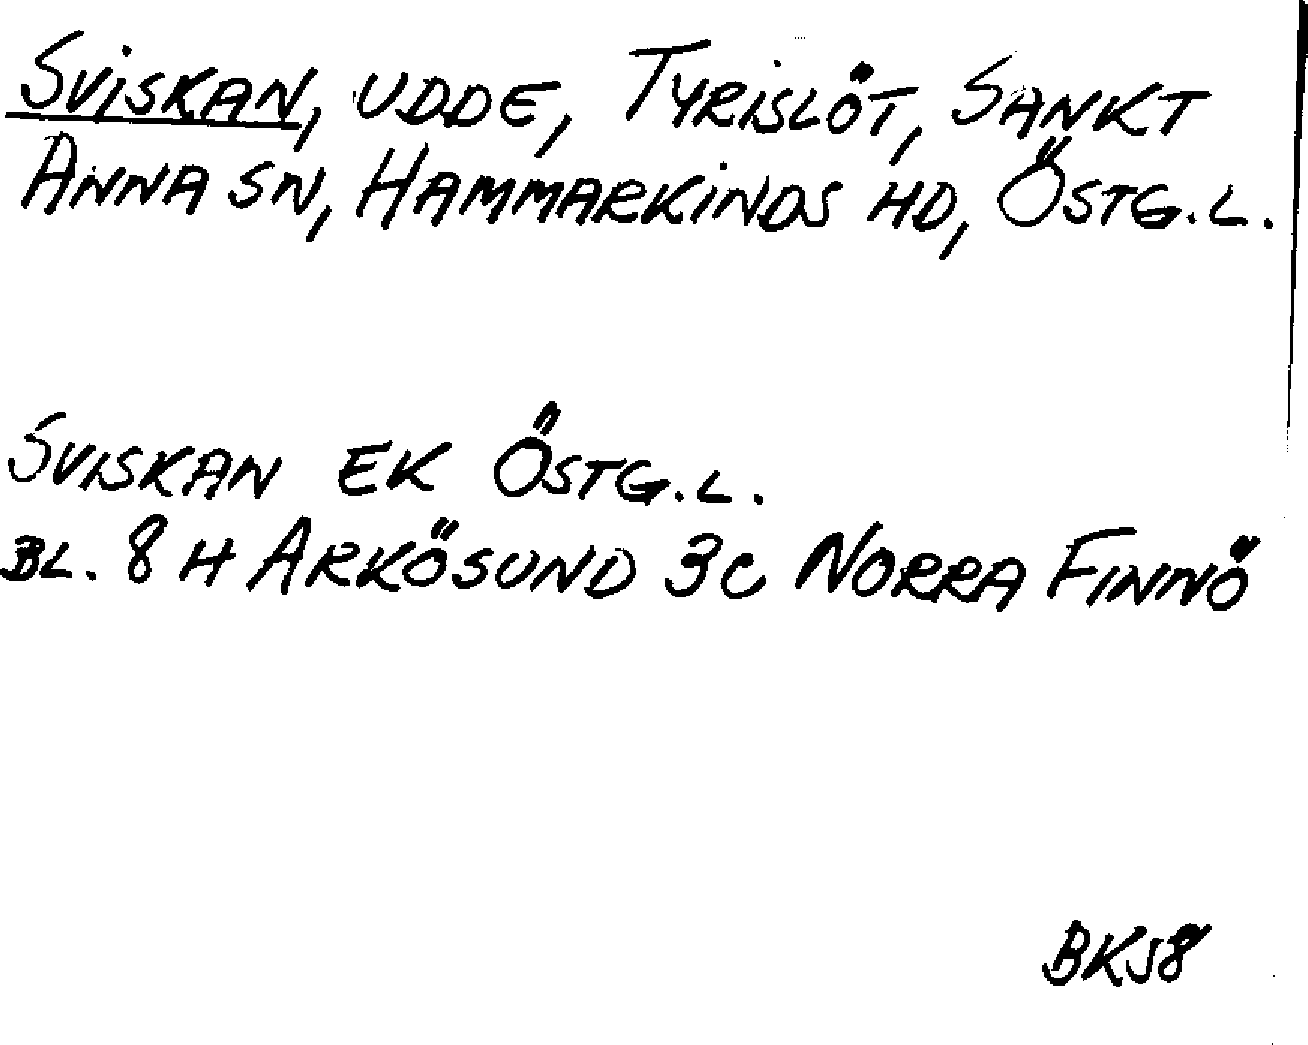 Sviskan, udde, Tyrislöt, Sankt
Anna sn, Hammarkinds hd, Östg.l.
Sviskan Ek Östg.l.
Bl. 8 H Arkösund 3c Norra Finnö
BKS8